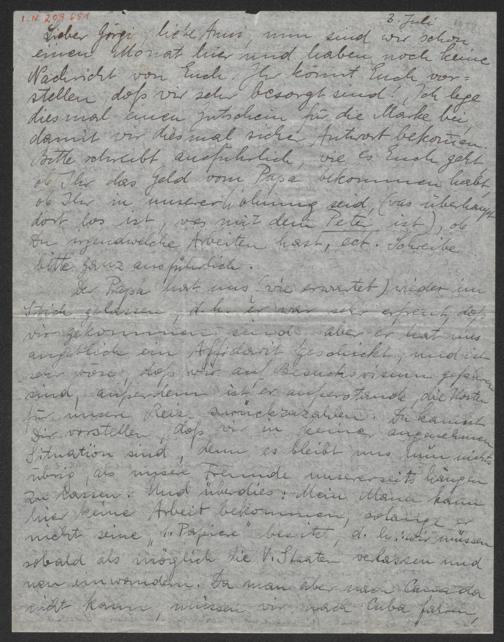 I.N. 209.651
3. Juli
Lieber Görgi, liebe Anni, nun sind wir schon
einen Monat hier und haben noch keine
Nachricht von Euch. Ihr könnt Euch vor-
stellen, daß wir sehr besorgt sind! Ich lege
diesmal einen Gutschein für die Marke bei,
damit wir diesmal sicher Antwort bekommen.
Bitte schreibt ausführlich, wie es Euch geht
ob Ihr das Geld vom Papa bekommen habt
ob Ihr in unserer Wohnung seid, (was überhaupt
dort los ist, was mit dem Peter ist), ob
Du irgendwelche Arbeiten hast, ect. Schreibe
bitte ganz ausführlich.
Der Papa hat uns (wie erwartet) wieder im
Stich gelassen, d.h. er war sehr erfreut, daß
wir gekommen sind aber er hat uns
angeblich ein Affidavit geschickt, und ist
sehr böse, daß wir auf Besuchsvisum gefahren
sind, außerdem ist er außerstande, die Kosten
für unsere Reise zurückzuzahlen. Du kannst
Dir vorstellen, daß wir in keiner angenehmen
Situation sind, denn es bleibt uns nun nichts
übrig, als unsere Freunde unsererseits hängen
zu lassen. Und überdies: Mein Mann kann
hier keine Arbeit bekommen, solange er
nicht seine "1. Papiere" besitzt, d.h. wir müssen
sobald als möglich die V. Staaten verlassen und
neu einwandern. Da man aber nach Canada
nicht kann, müssen wir nach Cuba fahren,